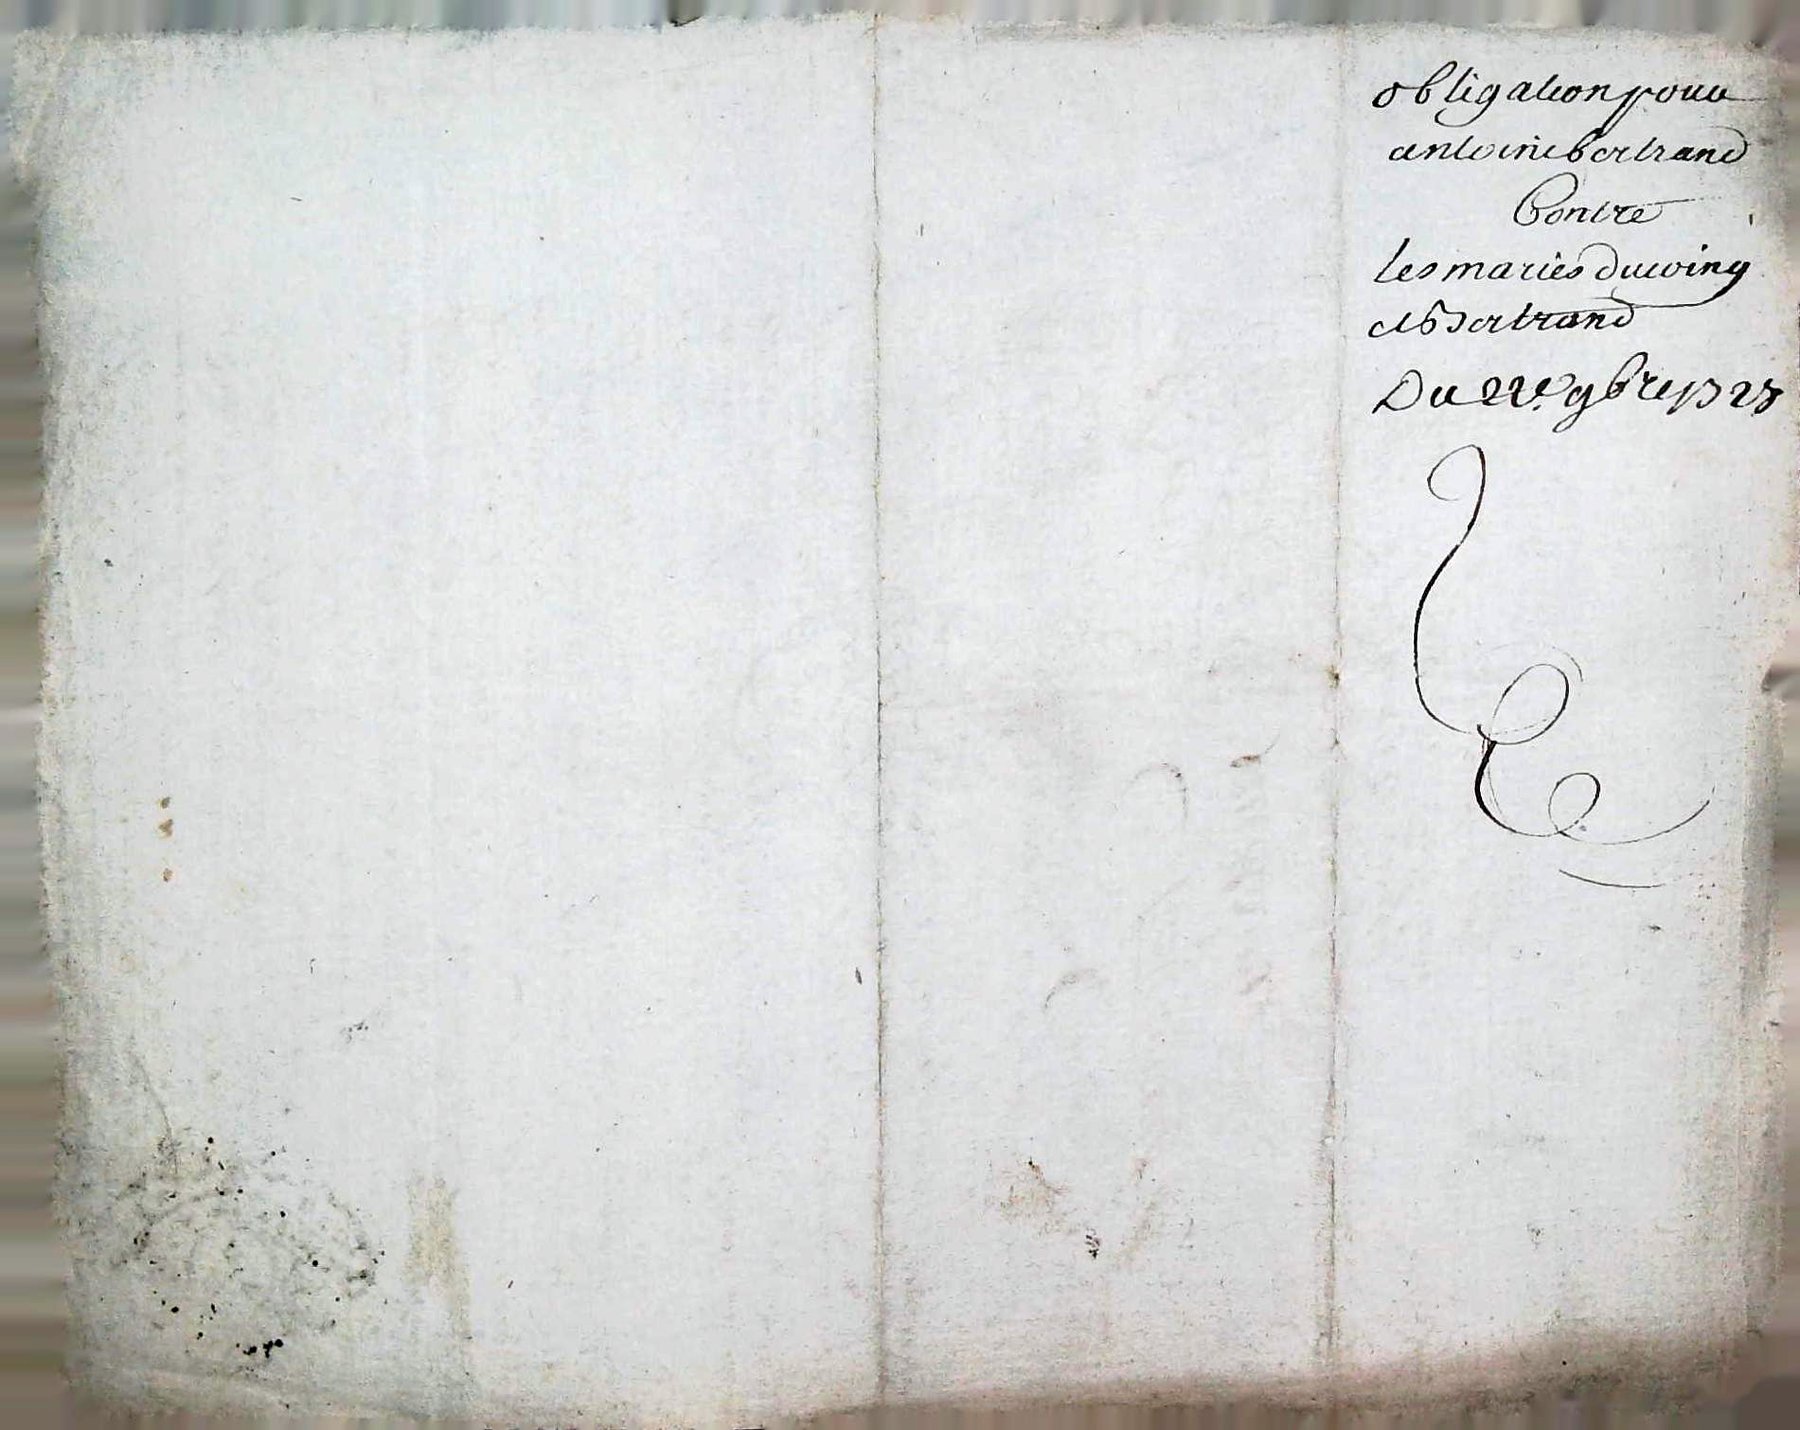 obligation pour
antoine bertrand
Contre
les maries ducoing
et Bertrand
Du 22e. 9bre 1728